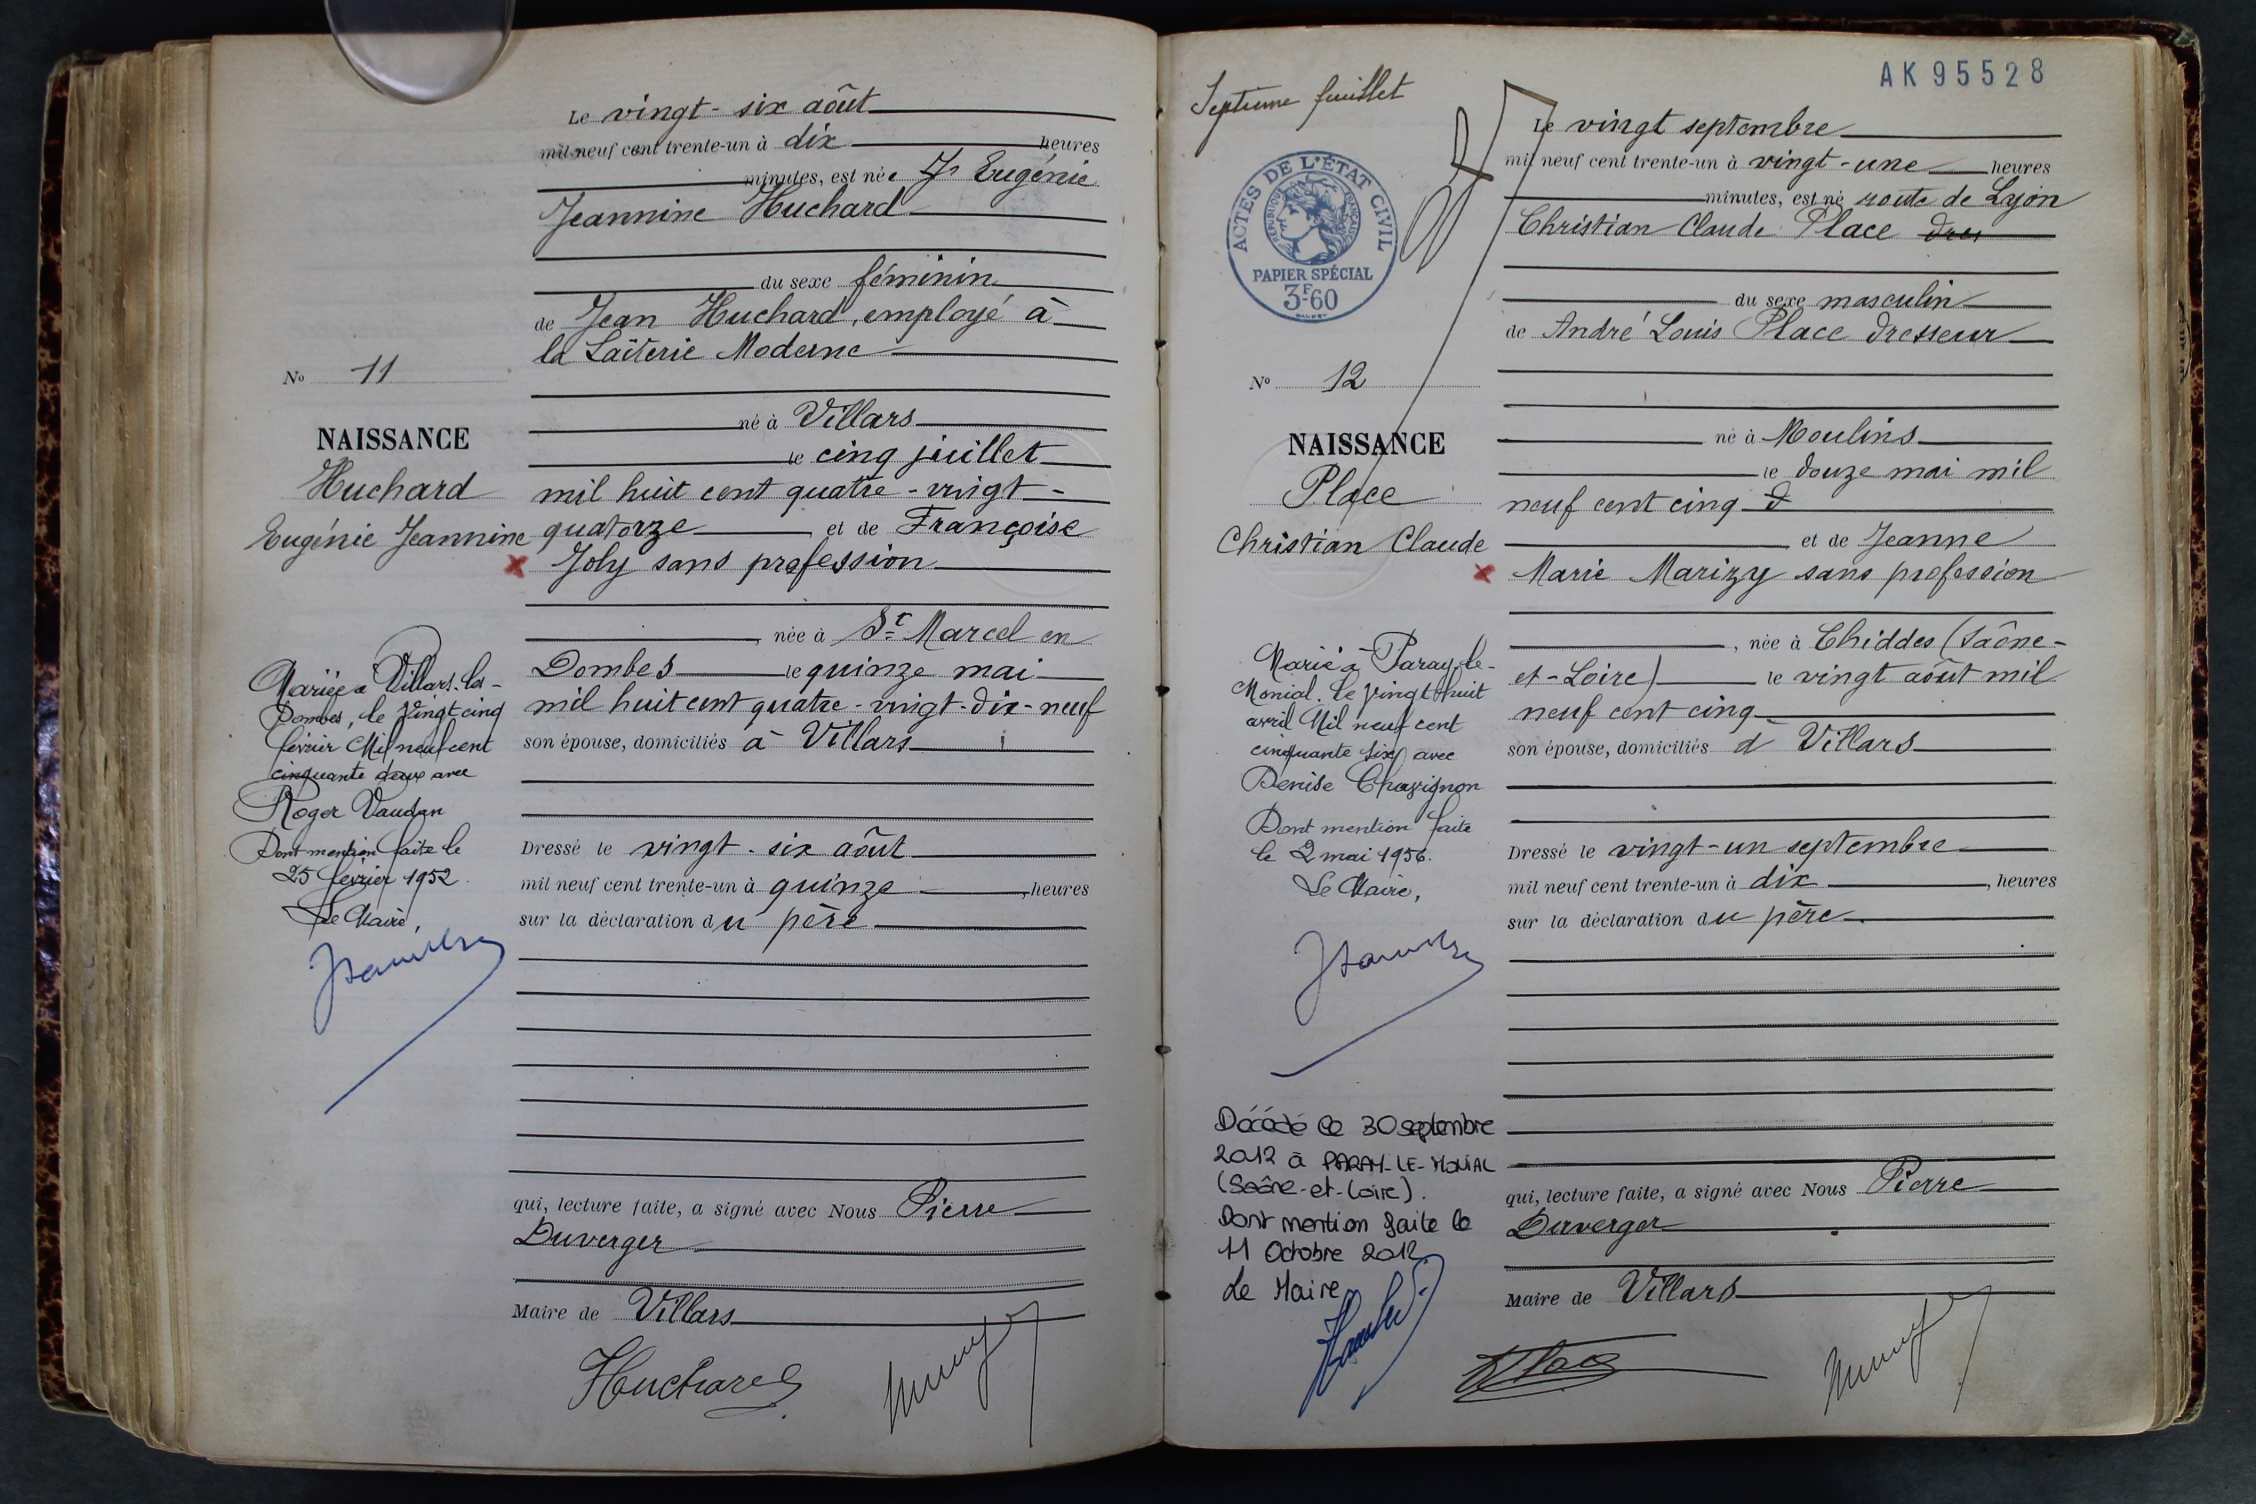 Le vingt-six août
mil neuf cent trente-un à dix heures
minutes, est née Eugénie
Jeannine Huchard
du sexe féminin
de Jean Huchard, employé à
la Laiterie Moderne
né à Villars
le cinq juillet
mil huit cent quatre-vingt-
quatorze et de Françoise
Joly sans profession
, née à St Marcel en
Dombes le quinze mai
mil huit cent quatre-vingt-dix-neuf
son épouse, domiciliés à Villars
Dressé le vingt-six août
mil neuf cent trente-un à quinze, heures
sur la déclaration du père
qui, lecture faite, a signé avec Nous Pierre
Duverger
Maire de Villars
Huchard
No 11
NAISSANCE
Huchard
Eugénie Jeannine
Mariée à Villars-les-
Dombes, le vingt cinq
février Mil neuf cent
cinquante deux avec
Roger Vaudan
Dont mention faite le
25 février 1952.
Le Maire,
Septième feuillet
AK95528
ACTES DE L'ÉTAT CIVIL
RÉPUBLIQUE FRANÇAISE
PAPIER SPÉCIAL
3F60
No 12
NAISSANCE
Place
Christian Claude
Marié à Paray-le-
Monial. le vingt huit
avril Mil neuf cent
cinquante six avec
Denise Chavignon
Dont mention faite
le 2 mai 1956.
Le Maire,
Décédé le 30 septembre
2012 à PARAY-LE-MONIAL
(Saône-et-Loire).
Dont mention faite le
11 Octobre 2012
Le Maire
Le vingt septembre
mil neuf cent trente-un à vingt-une heures
minutes, est né route de Lyon
Christian Claude Place dres
du sexe masculin
de André Louis Place dresseur
né à Moulins
le douze mai mil
neuf cent cinq
et de Jeanne
Marie Marizy sans profession
, née à Chiddes (Saône-
et-Loire) le vingt août mil
neuf cent cinq
son épouse, domiciliés à Villars
Dressé le vingt-un septembre
mil neuf cent trente-un à dix, heures
sur la déclaration du père
qui, lecture faite, a signé avec Nous Pierre
Duverger
Maire de Villars
Place